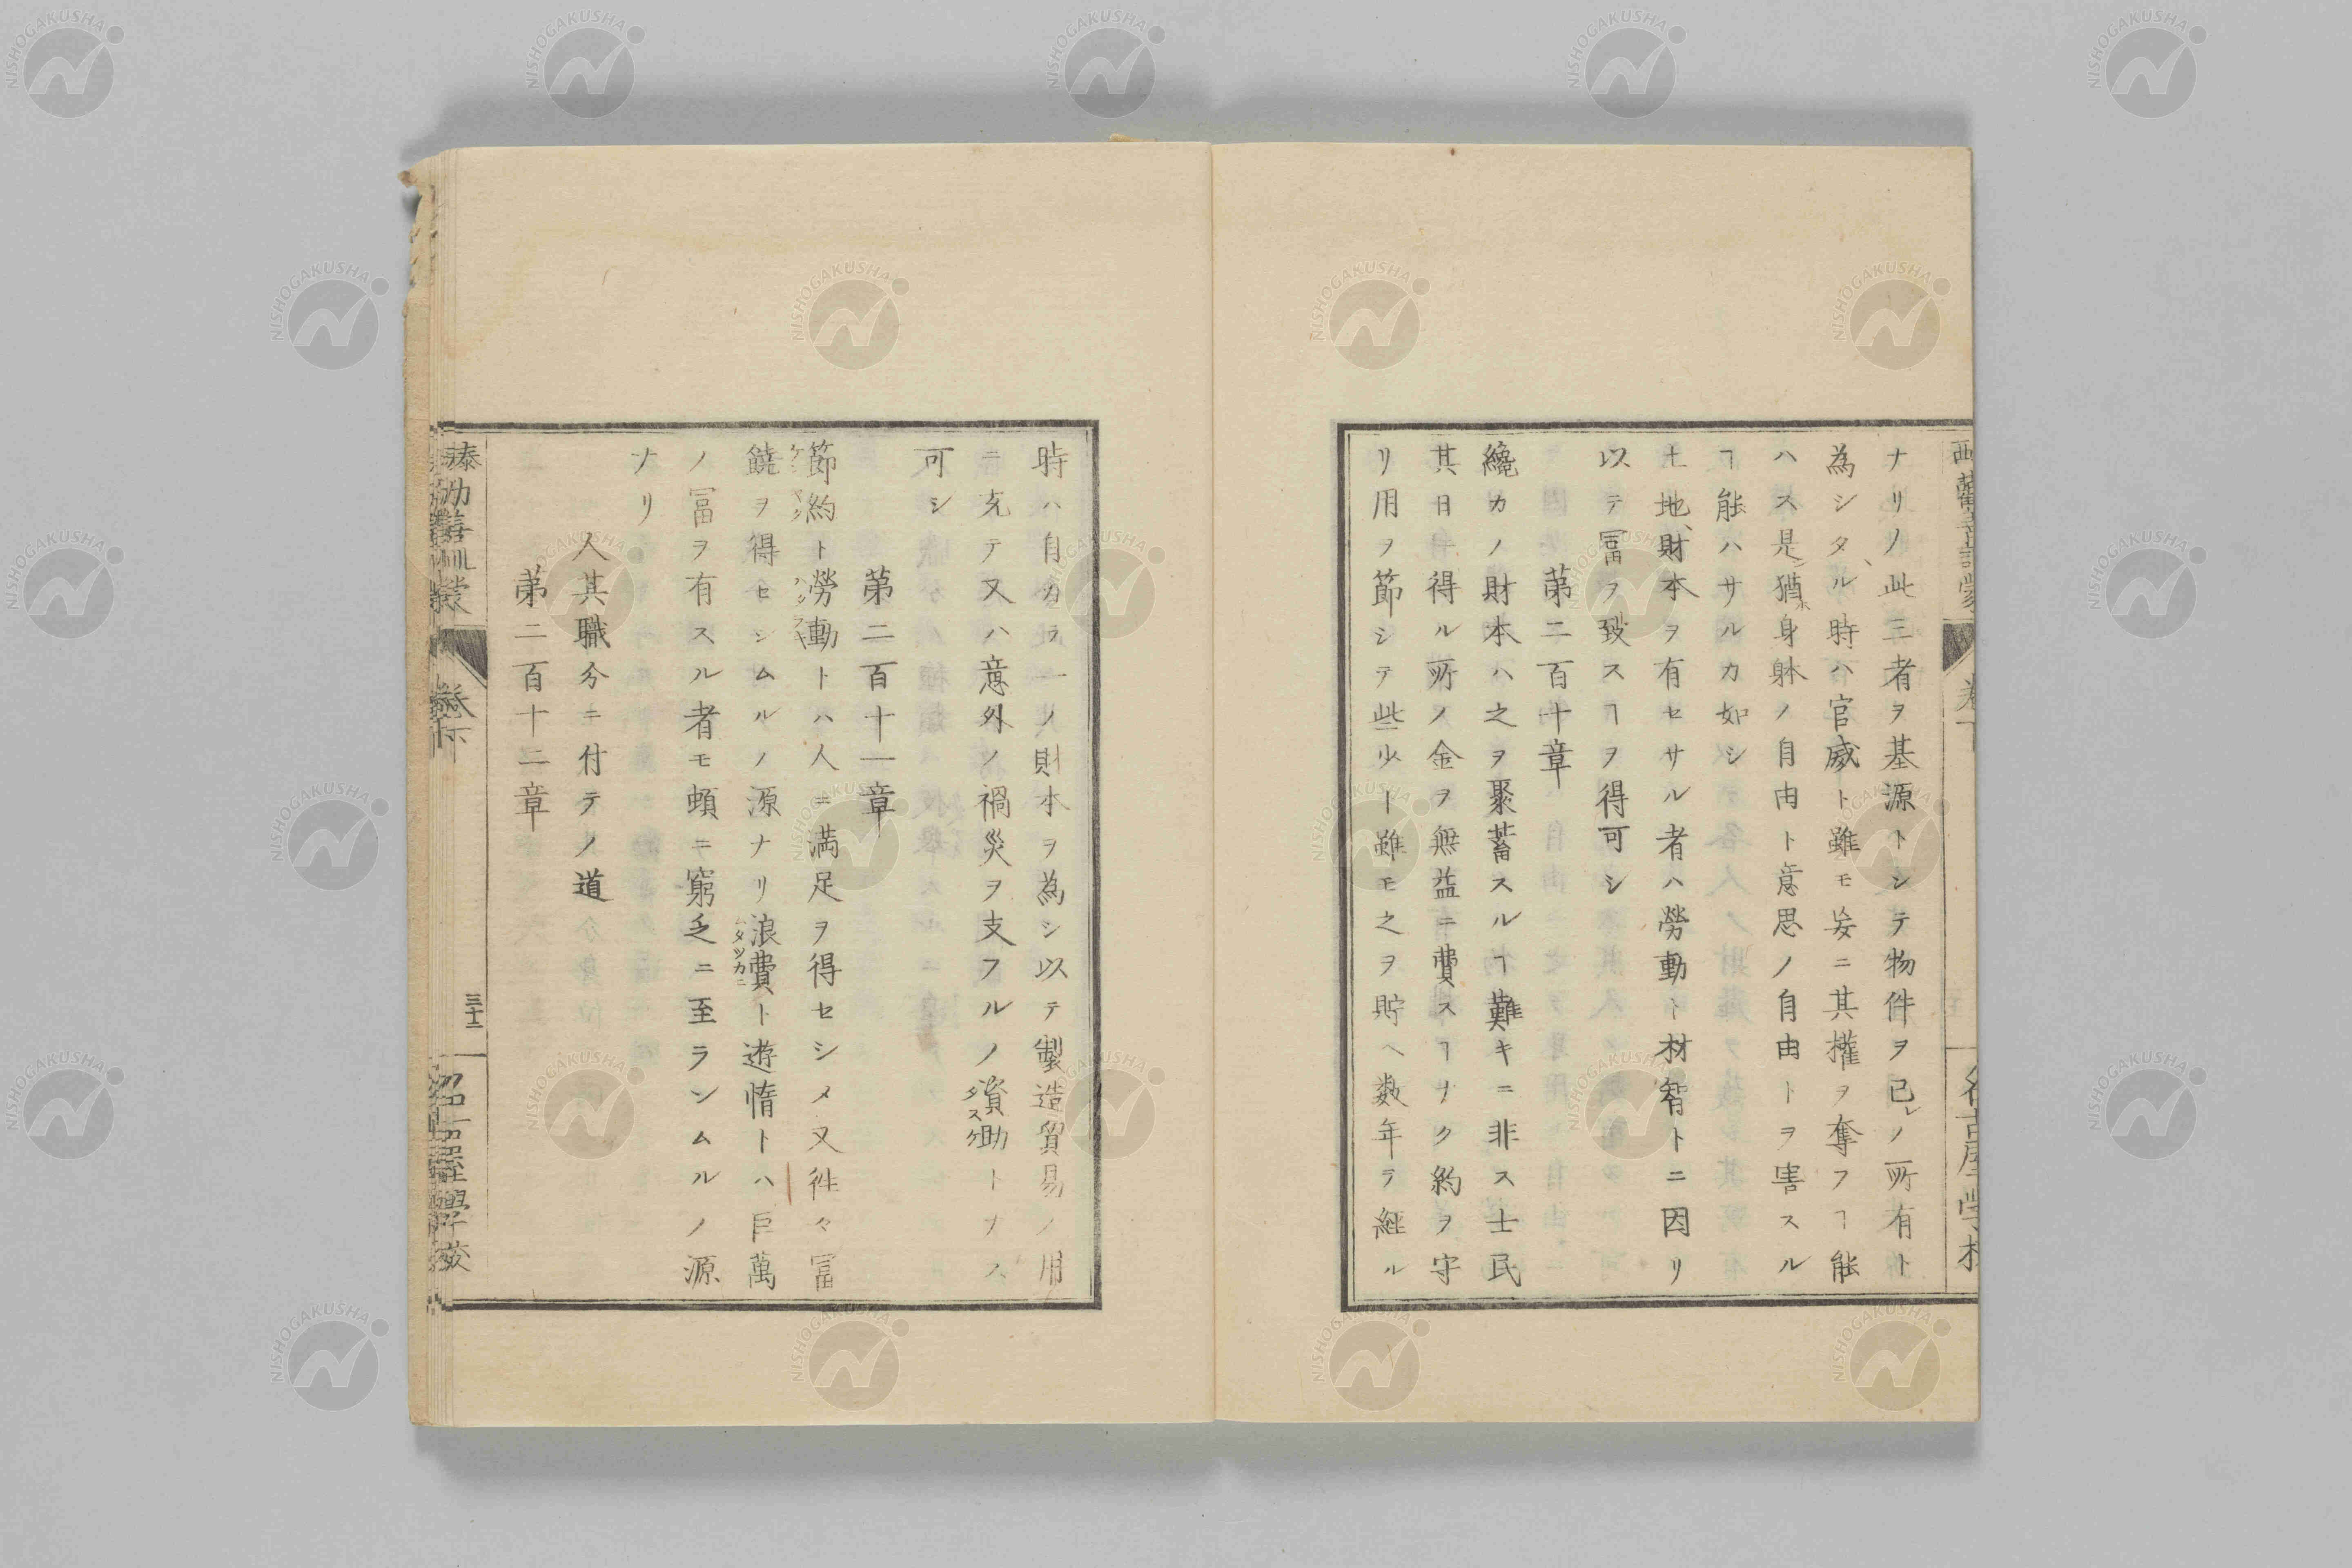 ナリノ此三者ヲ基源トシテ物件ヲ已レノ所有ト
為シタル時ハ官威ト雖モ妄ニ其權ヲ奪フヿ能
ハス是猶身躰ノ自由ト意思ノ自由トヲ害スル
ヿ能ハサルカ如シ
土地、財本ヲ有セサル者ハ勞動ト材智トニ因リ
以テ冨ヲ致スヿヲ得可シ
第二百十章
纔カノ財本ハ之ヲ聚蓄スルヿ難キニ非ス士民
其日得ル所ノ金ヲ無益ニ費スヿナク約ヲ守
リ用ヲ節シテ些少ト雖モ之ヲ貯ヘ数年ヲ經ル
時ハ自カラ一ノ財本ヲ為シ以テ製造貿易ノ用
ニ充テ又ハ意外ノ禍災ヲ支フルノ資助トナス
タスケ
可シ
第二百十一章
節約ト勞動トハ人ニ満足ヲ得セシメ又徃々冨
ケンヤク
ハタラキ
饒ヲ得セシムルノ源ナリ浪費ト遊惰トハ巨萬
ムダツカヒ
ノ冨ヲ有スル者モ頓ニ窮乏ニ至ランムルノ源
ナリ
人其職分ニ付テノ道
第二百十二章
泰西勸善訓蒙
卷下
三十二
名古屋學校
NISHOGAKUSHA